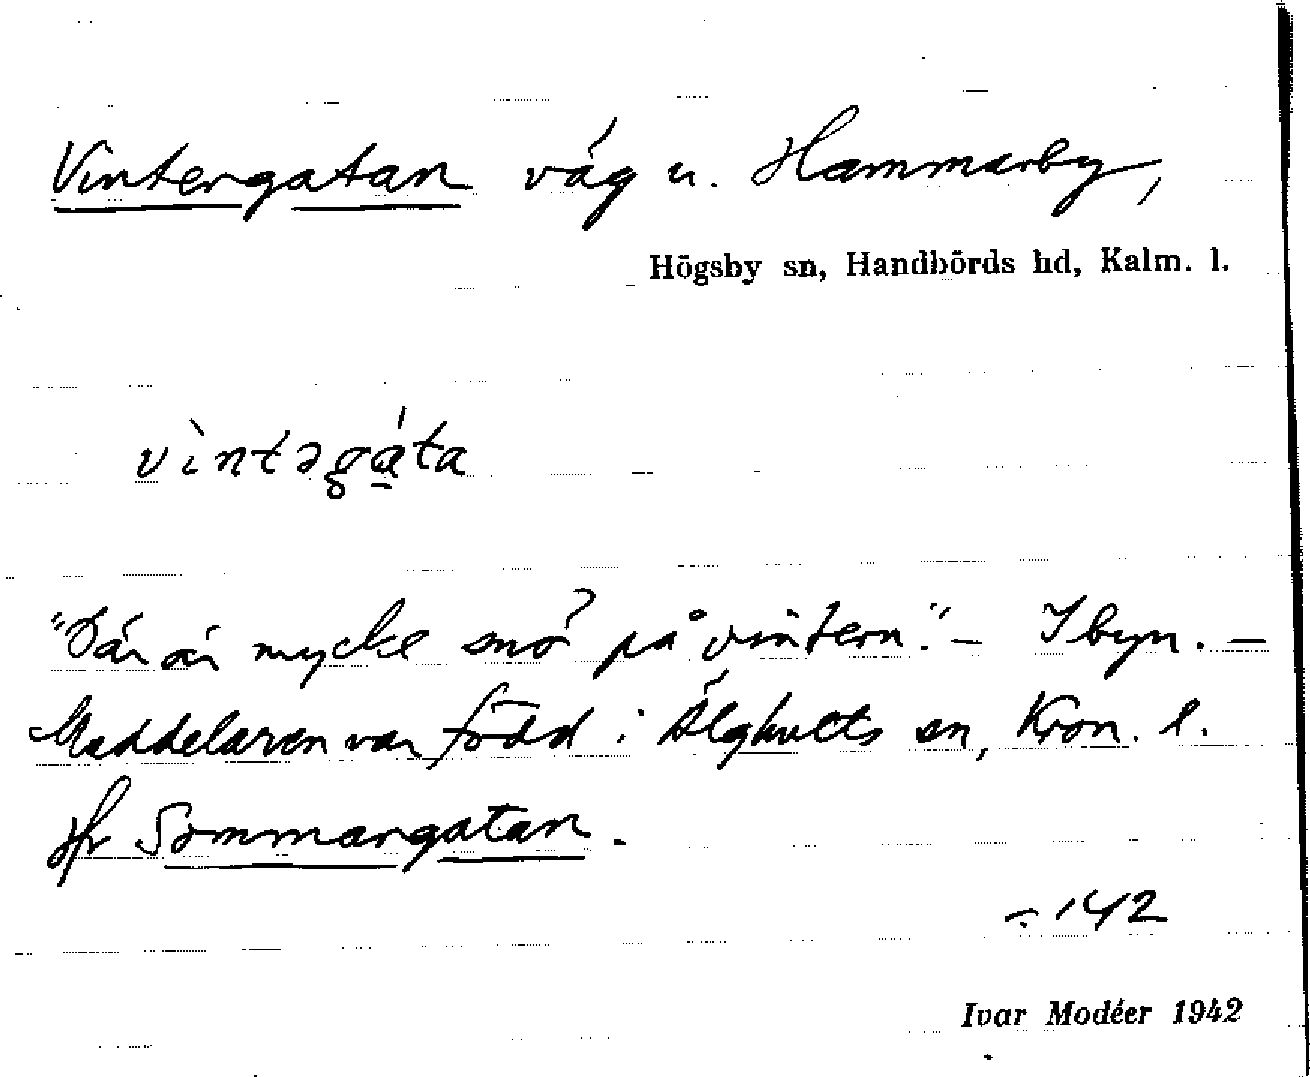 Vintergatan väg u. Hammarby,
Högsby sn, Handbörds hd, Kalm. l.
vìntəgáta
"Där är mycke snö på vintern." – I byn. –
Meddelaren var född i Älghults sn, Kron. l.
Jfr Sommargatan.
÷ 142
Ivar Modéer 1942